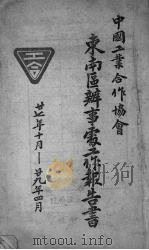 中國工業合作協會
東南區辦事處工作報告書
工合
廿七年十月—廿九年四月